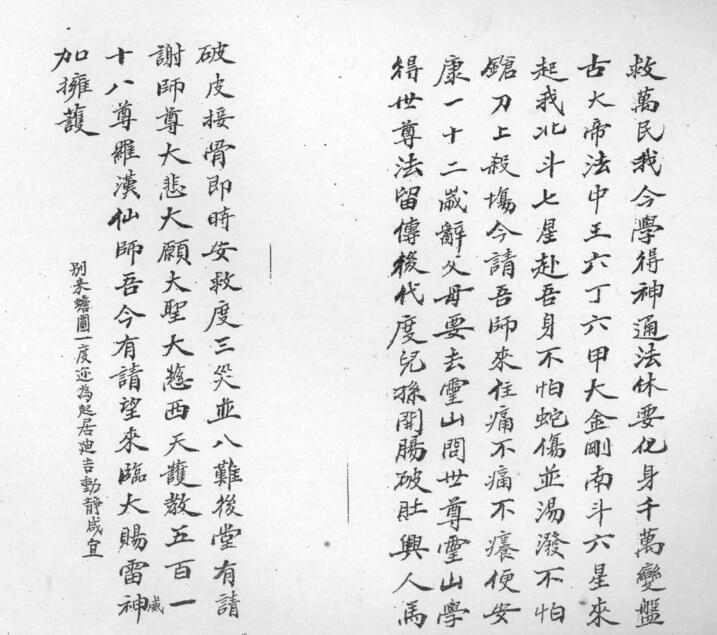 救萬民我今學得神通法休要化身千萬變盤
古大帝法中王六丁六甲大金剛南斗六星來
起我北斗七星赴吾身不怕蛇傷並湯潑不怕
鎗刀上殺塲今請吾師來住痛不痛不癢便安
康一十二歲辭父母要去靈山問世尊靈山學
得世尊法留傳後代度兒孫開腸破肚興人馬
破皮接骨即時安救度三災並八難後堂有請
謝師尊大悲大願大聖大慈西天護教五百一
十八尊羅漢仙師吾今有請望來臨大賜雷神
威
加擁護
別來蟾圓一度近為起居迪吉動靜咸宜